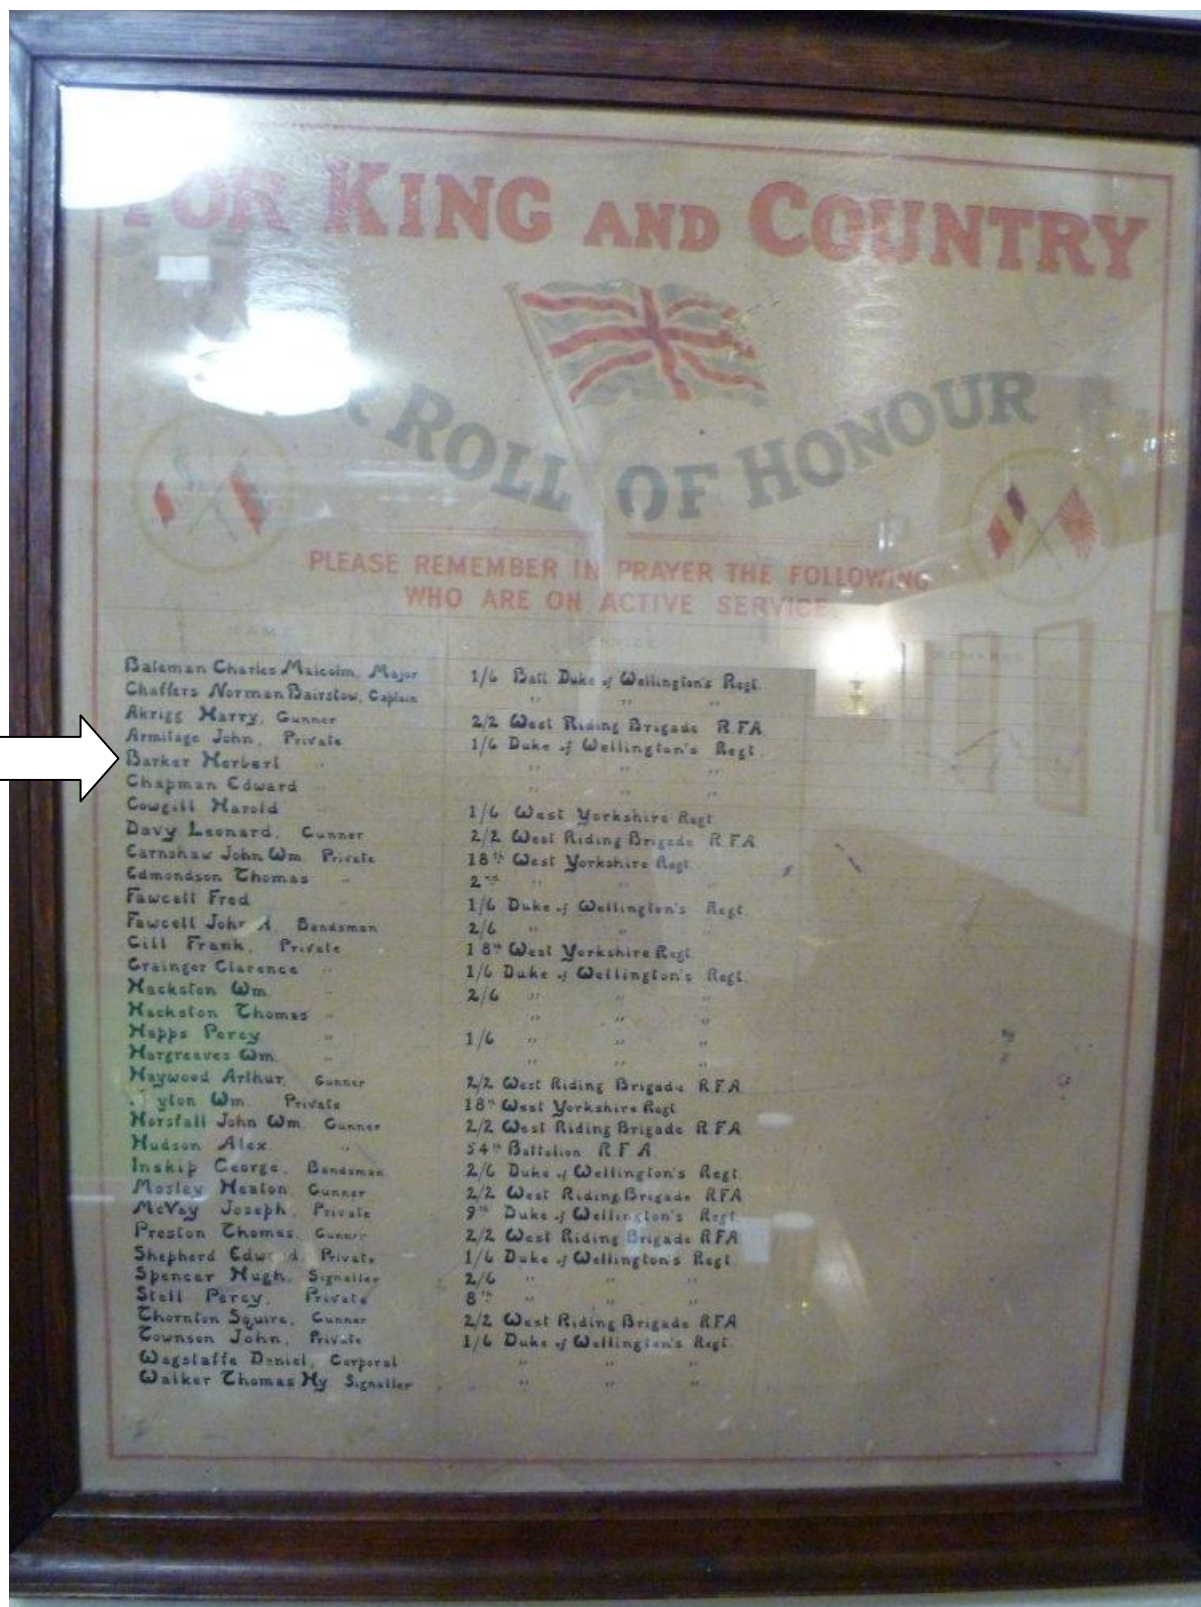 FOR KING AND COUNTRY
ROLL OF HONOUR
PLEASE REMEMBER IN PRAYER THE FOLLOWING
WHO ARE ON ACTIVE SERVICE.
NAME SERVICE REMARKS
Bateman Charles Malcolm, Major 1/6 Batt Duke of Wellington's Regt.
Chaffers Norman Bairstow, Captain " " "
Akrigg Harry, Gunner 2/2 West Riding Brigade R.F.A.
Armitage John, Private 1/6 Duke of Wellington's Regt.
Barker Herbert " " " "
Chapman Edward " " " "
Cowgill Harold " 1/6 West Yorkshire Regt
Davy Leonard, Gunner 2/2 West Riding Brigade R.F.A.
Earnshaw John Wm. Private 18th West Yorkshire Regt.
Edmondson Thomas " 2nd " " "
Fawcett Fred " 1/6 Duke of Wellington's Regt.
Fawcett John Bandsman 2/6 " " "
Gill Frank, Private 18th West Yorkshire Regt.
Grainger Clarence " 1/6 Duke of Wellington's Regt.
Hackston Wm. " 2/6 " " "
Hackston Thomas " " " "
Happs Percy " 1/6 " " "
Hargreaves Wm. " " " "
Haywood Arthur, Gunner 2/2 West Riding Brigade R.F.A.
Wm. Private 18th West Yorkshire Regt.
Horsfall John Wm. Gunner 2/2 West Riding Brigade R.F.A.
Hudson Alex " 54th Battalion R.F.A.
Inskip George, Bandsman 2/6 Duke of Wellington's Regt.
Mosley Heaton, Gunner 2/2 West Riding Brigade R.F.A.
McVay Joseph, Private 9th Duke of Wellington's Regt
Preston Thomas, Gunner 2/2 West Riding Brigade R.F.A.
Shepherd Edward, Private 1/6 Duke of Wellington's Regt
Spencer Hugh, Signaller 2/6 " " "
Stell Percy, Private 8th " " "
Thornton Squire, Gunner 2/2 West Riding Brigade R.F.A.
Townson John, Private 1/6 Duke of Wellington's Regt.
Wagstaffe Daniel, Corporal " " "
Walker Thomas Hy Signaller " " "